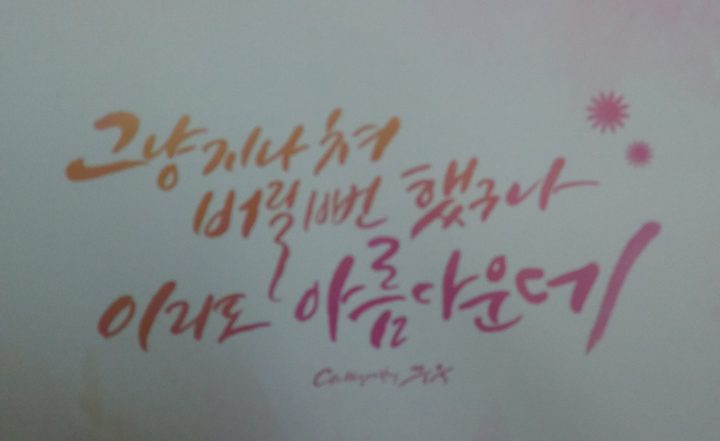 그냥 지나쳐
버릴뻔 했구나
이리도 아름다운데